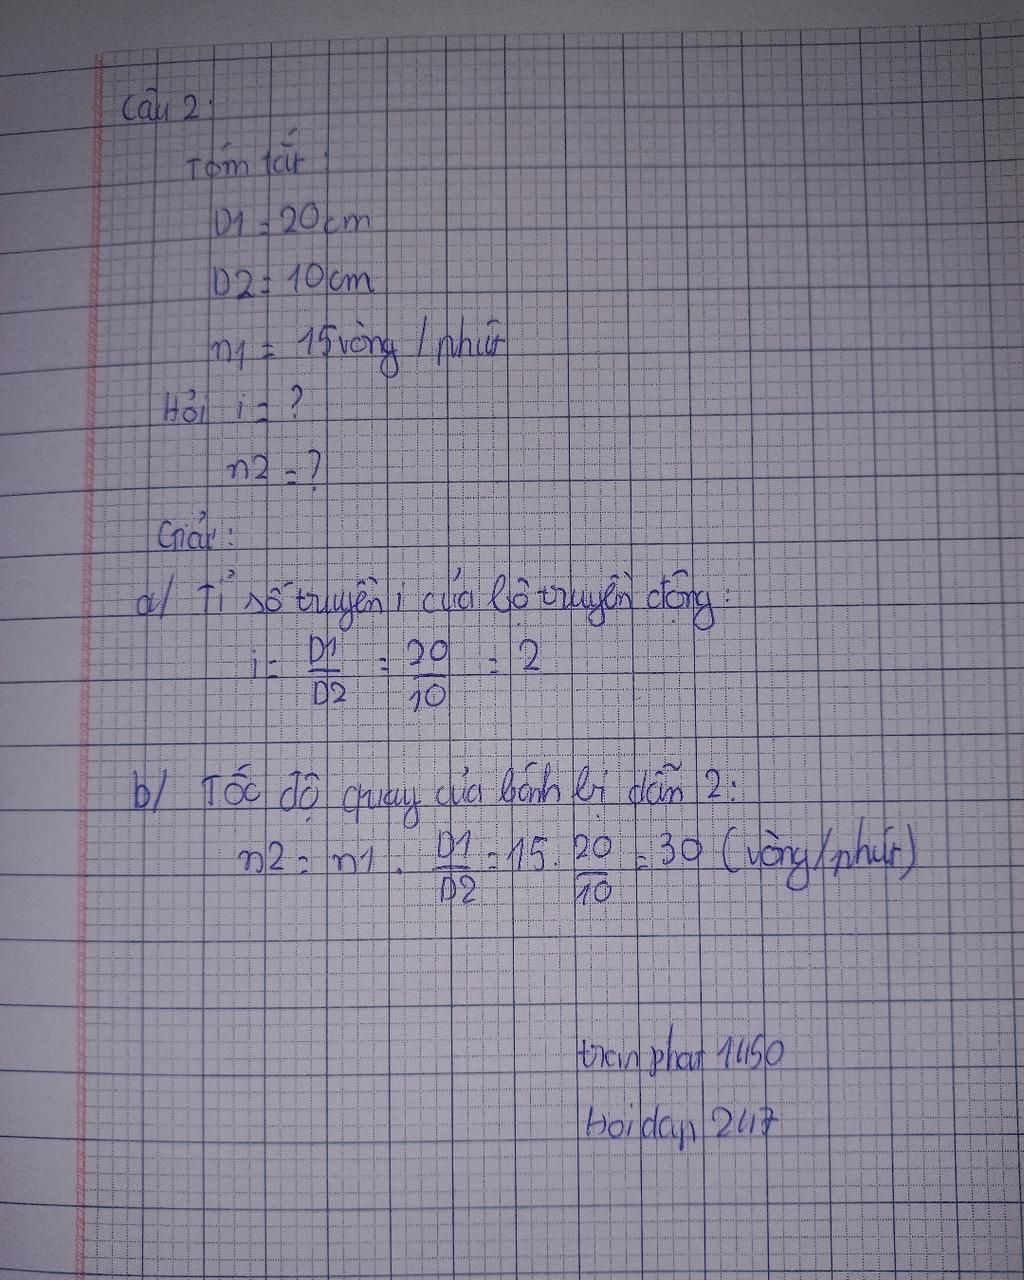 Câu 2:
Tóm tắt:
D1 = 20cm
D2 = 10cm
n1 = 15 vòng / phút
Hỏi i = ?
n2 = ?
Giải:
a/ Tỉ số truyền i của bộ truyền động:
i = D1/D2 = 20/10 = 2
b/ Tốc độ quay của bánh bị dẫn 2:
n2 = n1 . D1/D2 = 15 . 20/10 = 30 (vòng/phút)
tranphat 1450
Hoidap 247